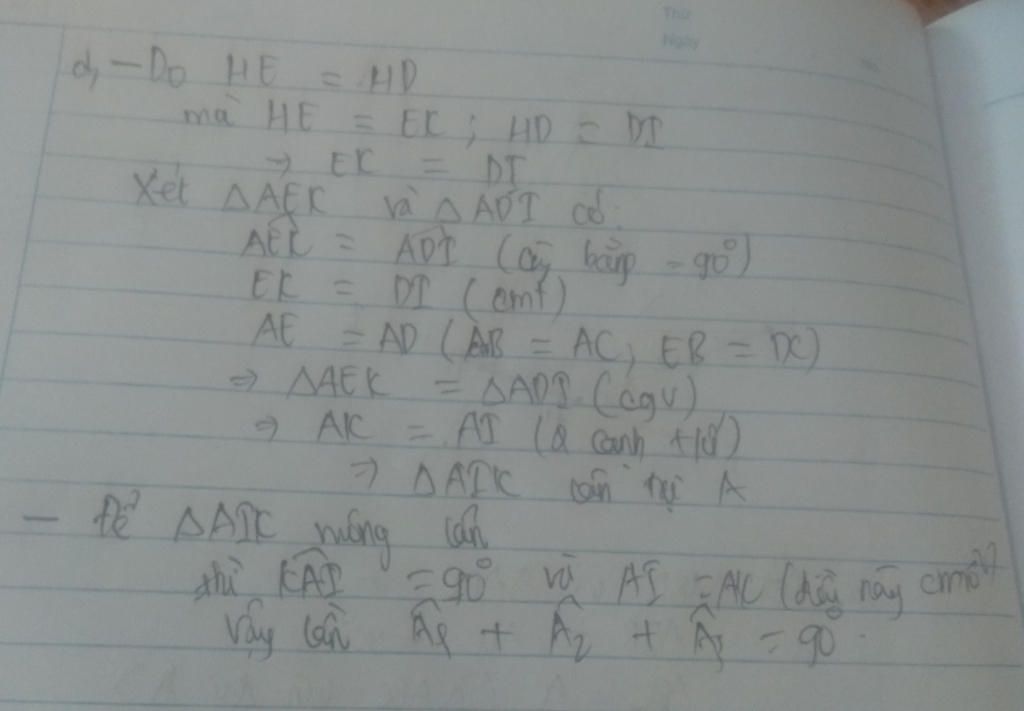 Thứ
Ngày
d, - Do HE = HD
mà HE = EK ; HD = DI
→ EK = DI
Xét △AEK và △ADI có:
AEK̂ = ADÎ (cùng bằng = 90°)
EK = DI (cmt)
AE = AD (AB = AC, EB = DC)
⇒ △AEK = △ADI (cgv)
⇒ AK = AI (2 cạnh tứ)
⇒ △AIK cân tại A
- Để △AIK vuông cân
thì KAÎ = 90° và AI = AK (điều này cmt)
Vậy cần Â1 + Â2 + Â3 = 90°.